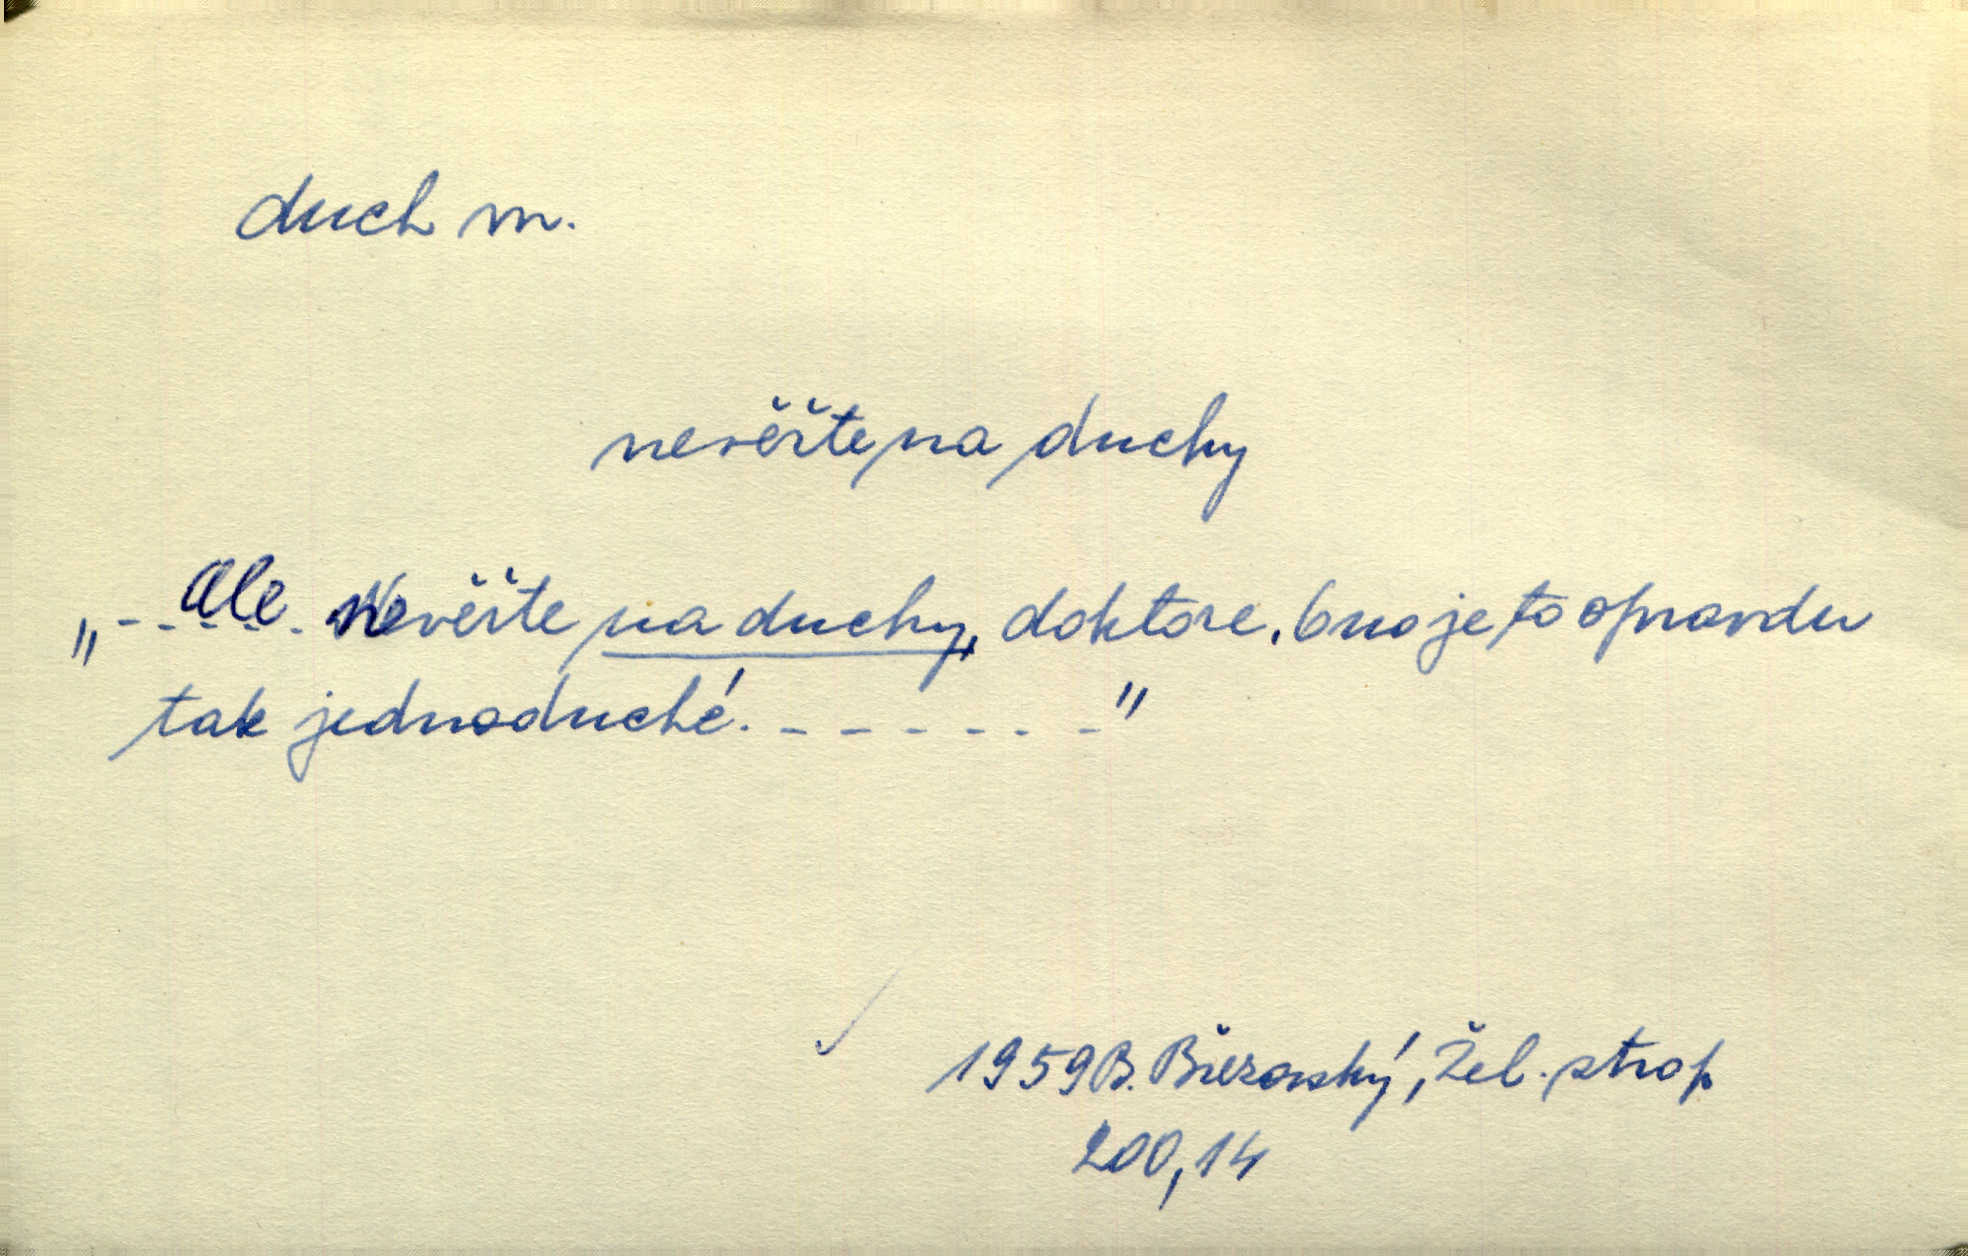 duch m.
nevěřte na duchy
„ - - Ale - - nevěřte na duchy, doktore. Ono je to opravdu
tak jednoduché. - - - - - - "
1959 B. Březovský, Žel. strop
200,14